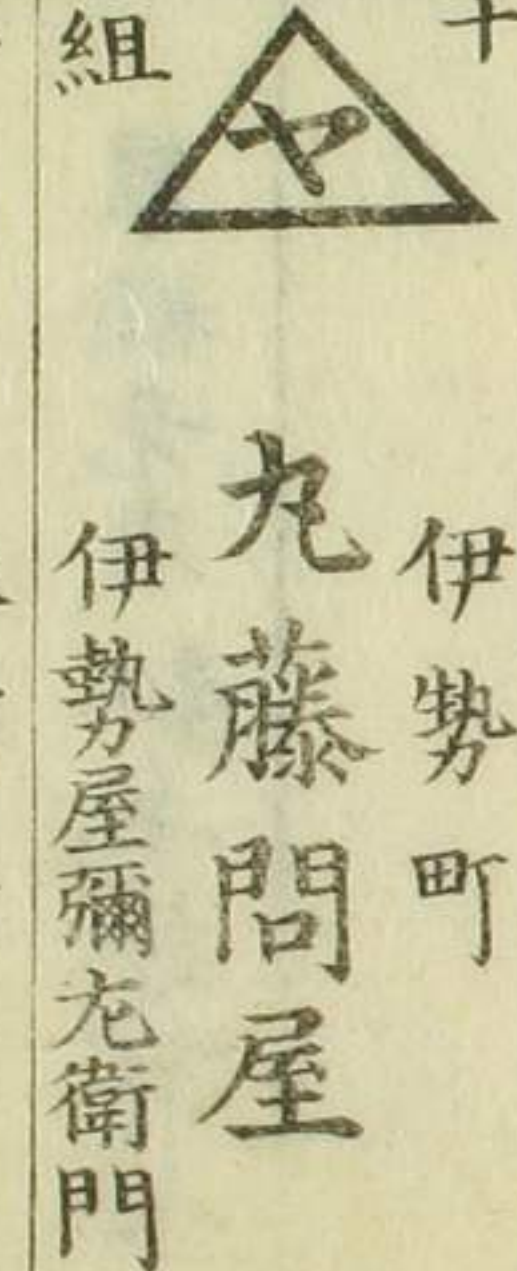 十
組
ヤ
伊勢町
丸藤問屋
伊勢屋彌左衛門